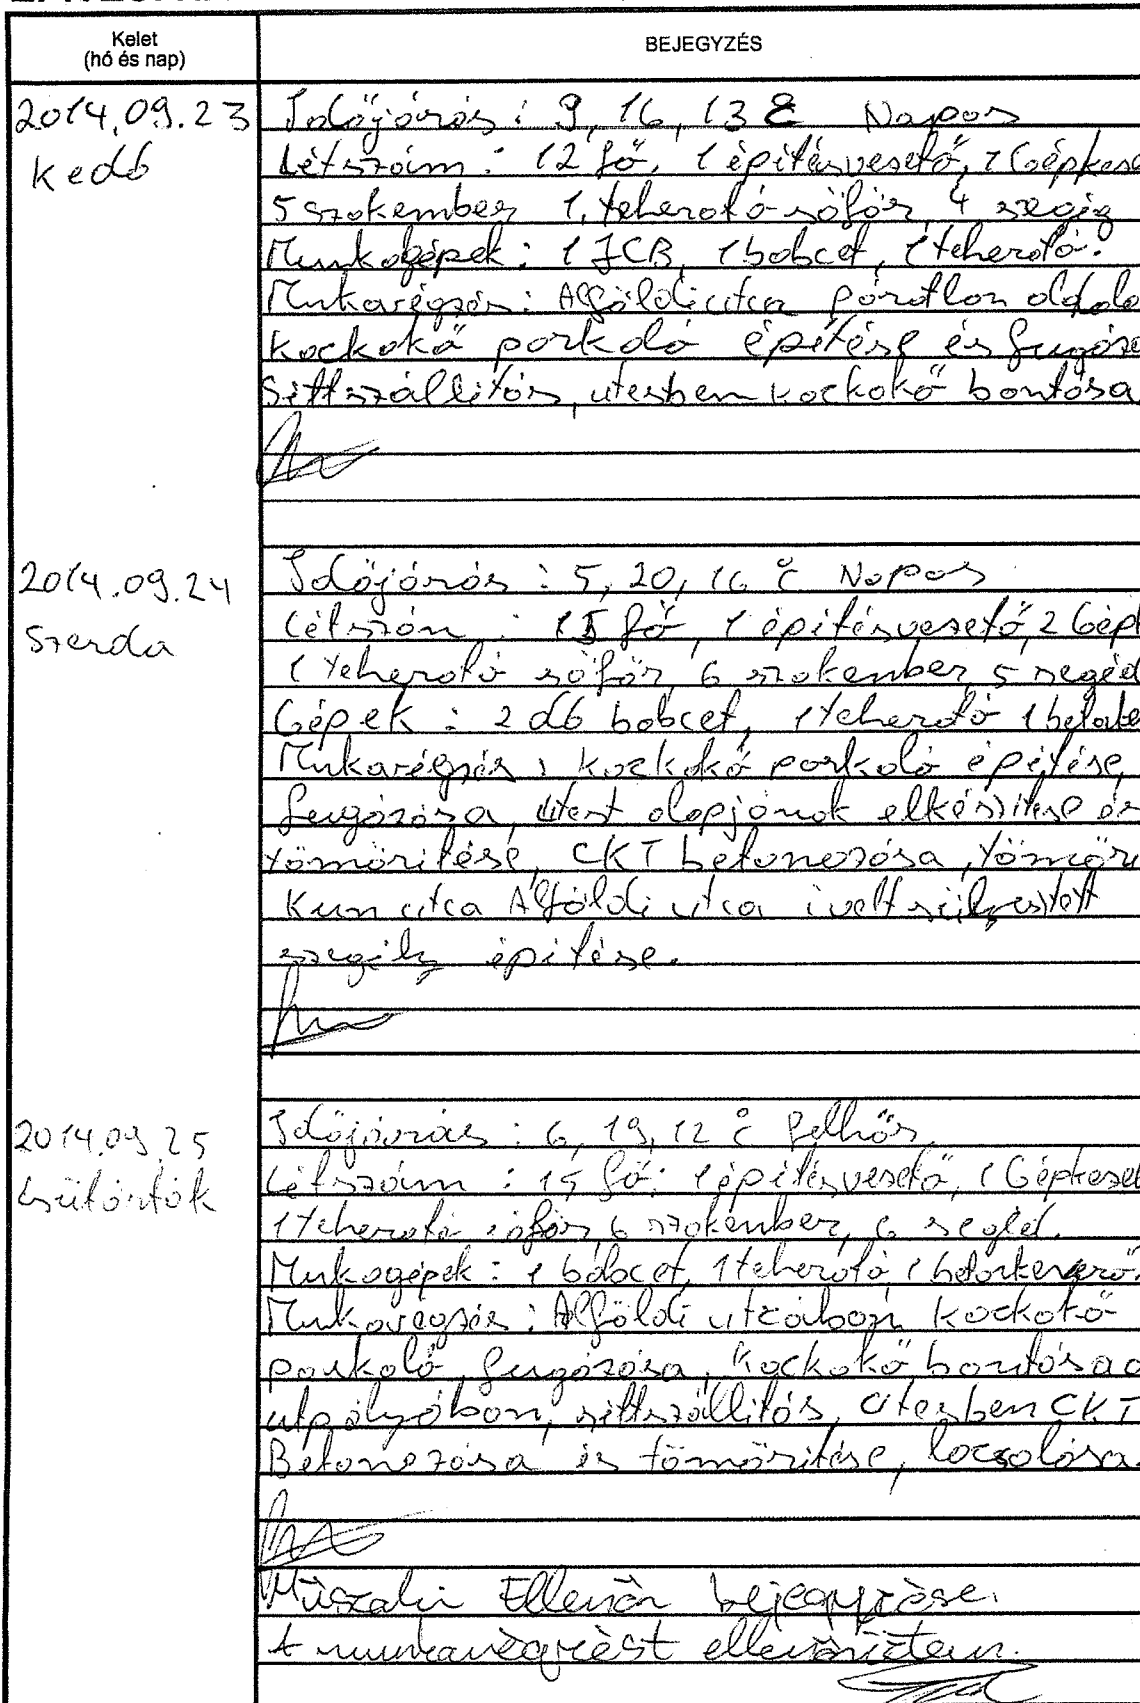 Kelet
(hó és nap)
BEJEGYZÉS
2014.09.23
Kedd
Időjárás : 9, 16, 13 °C Napos
Létszám : 12 fő, 1 építésvezető, 1 Gépkeze
5 szakember 1, teherotó söfőr, 4 segíg
Munkagépek : 1 JCB, 1 bobcet, 1 teherotó.
Mukavégzés : Alföldi utca párotlan oldalo
Kockakő porkoló építése és fugáza
Sittszállítás, utesben kockakő bontása
2014.09.24
Szerda
Időjárás : 5, 20, 16 °C Napos
Létszám : 15 fő, 1 építésvezető, 2 Gépk
1 teherotó söfőr, 6 szakember, 5 segéd
Gépek : 2 db bobcet, 1 teherotó 1 betoke
Mukavégzés : kockakő porkoló építése,
fugázása, útest alapjának elkészítése és
tömörítése, CKT betonozása, tömöri
Kun utca Alföldi utca ívelt süllyesztett
szegély építése.
2014.09.25
Csütörtök
Időjárás : 6, 19, 12 °C Felhős
Létszám : 15 fő: 1 építésvezető, 1 Gépkezel
1 teherotó söfőr, 6 szakember, 6 segéd.
Mukagépek : 1 bobcet, 1 teherotó, 1 betonkeverő.
Munkavégzés : Alföldi utcában kockakő
porkoló fugázása, Kockakő bontása a
utpályában, sittszállítás, Utesben CKT
Betonozása és tömörítése, locsolása.
Műszaki Ellenőr bejegyzése.
A munkavégzést ellenőriztem.